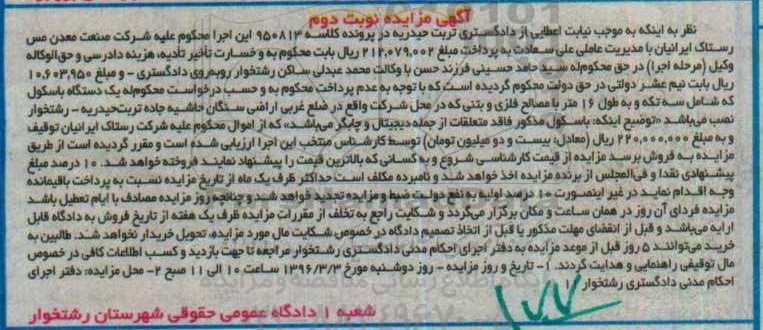 آگهی مزایده نوبت دوم
نظر به اینکه به موجب نیابت اعطایی از دادگستری تربت حیدریه در پرونده کلاسه ۹۵۰۸۱۳ این اجرا محکوم علیه شرکت صنعت معدن مس
رستاک ایرانیان با مدیریت عاملی علی سعادت به پرداخت مبلغ ۲۱۲,۰۷۹,۰۰۲ ریال بابت محکوم به و خسارت تأخیر تأدیه، هزینه دادرسی و حق‌الوکاله
وکیل (مرحله اجرا) در حق محکوم‌له سید حامد حسینی فرزند حسن با وکالت محمد عبدلی ساکن رشتخوار روبه‌روی دادگستری - و مبلغ ۱۰,۶۰۳,۹۵۰
ریال بابت نیم عشر دولتی در حق دولت محکوم گردیده است که با توجه به عدم پرداخت محکوم به و حسب درخواست محکوم‌له یک دستگاه باسکول
که شامل سه تکه و به طول ۱۶ متر با مصالح فلزی و بتنی که در محل شرکت واقع در ضلع غربی اراضی سنگان حاشیه جاده تربت‌حیدریه - رشتخوار
نصب می‌باشد «توضیح اینکه: باسکول مذکور فاقد متعلقات از جمله دیجیتال و چاپگر می‌باشد» که از اموال محکوم علیه شرکت رستاک ایرانیان توقیف
و به مبلغ ۲۲۰,۰۰۰,۰۰۰ ریال (معادل: بیست و دو میلیون تومان) توسط کارشناس منتخب این اجرا ارزیابی شده است و مقرر گردیده است از طریق
مزایده به فروش برسد مزایده از قیمت کارشناسی شروع و به کسانی که بالاترین قیمت را پیشنهاد نمایند فروخته خواهد شد. ۱۰ درصد مبلغ
پیشنهادی نقدا و فی‌المجلس از برنده مزایده اخذ خواهد شد و نامبرده مکلف است حداکثر ظرف یک ماه از تاریخ مزایده نسبت به پرداخت باقیمانده
وجه اقدام نماید در غیر اینصورت ۱۰ درصد اولیه به نفع دولت ضبط و مزایده تجدید خواهد شد و چنانچه روز مزایده مصادف با ایام تعطیل باشد
مزایده فردای آن روز در همان ساعت و مکان برگزار می‌گردد و شکایت راجع به تخلف از مقررات مزایده ظرف یک هفته از تاریخ فروش به دادگاه قابل
ارایه می‌باشد و قبل از انقضای مهلت مذکور یا قبل از اتخاذ تصمیم دادگاه در خصوص شکایت مال مورد مزایده، تحویل خریدار نخواهد شد. طالبین به
خرید می‌توانند ۵ روز قبل از موعد مزایده به دفتر اجرای احکام مدنی دادگستری رشتخوار مراجعه تا جهت بازدید و کسب اطلاعات کافی در خصوص
مال توقیفی راهنمایی و هدایت گردند. ۱- تاریخ و روز مزایده - روز دوشنبه مورخ ۱۳۹۶/۳/۲ ساعت ۱۰ الی ۱۱ صبح ۲- محل مزایده: دفتر اجرای
احکام مدنی دادگستری رشتخوار
۱۷۷
شعبه ۱ دادگاه عمومی حقوقی شهرستان رشتخوار